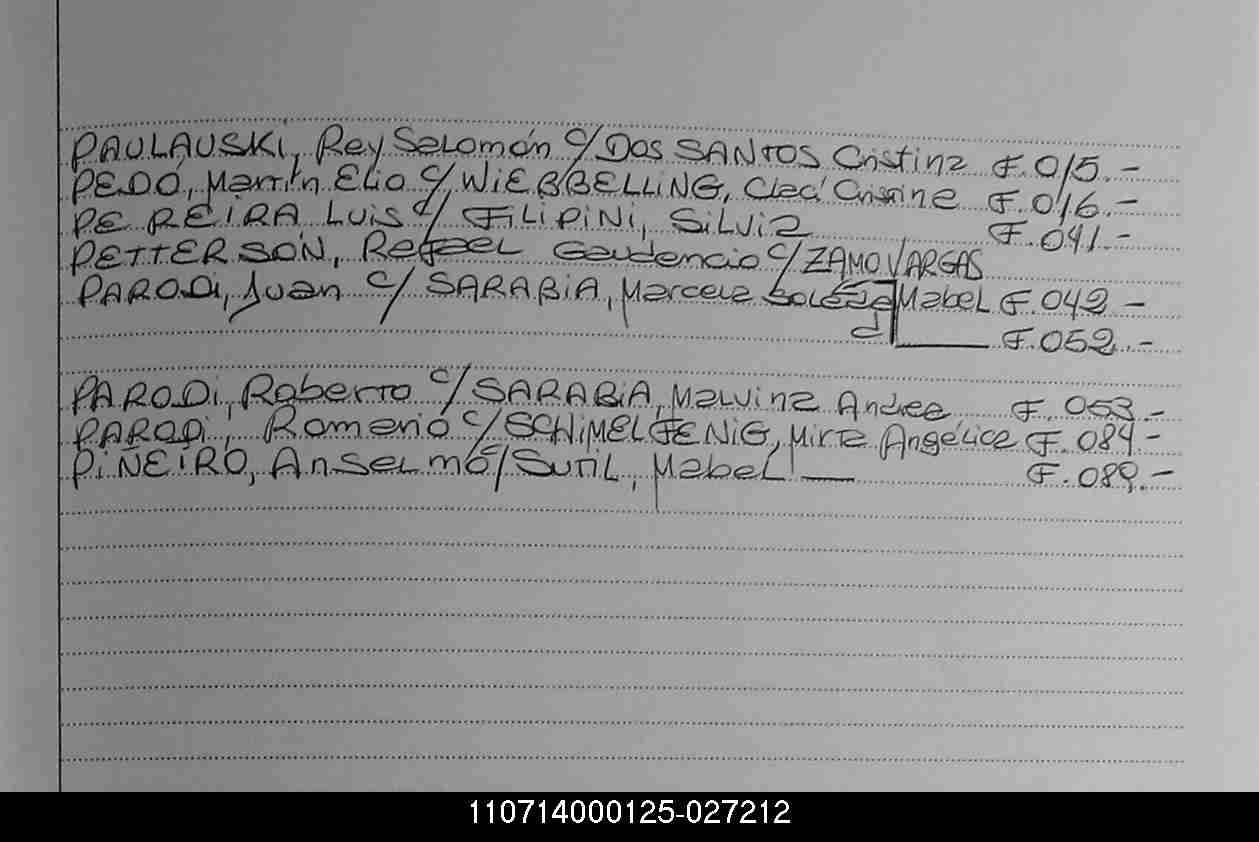 PAULAUSKI, Rey Salomón c/ DOS SANTOS Cristina F. 015.-
PEDO, Martín Elio c/ WIEBBELLING, Cleci Crisrine F. 016.-
PEREIRA Luis c/ FILIPINI, Silvia F. 041.-
PETTERSON, Rafael Gaudencio c/ ZAMO VARGAS
PARODI, Juan c/ SARABIA, Marcela Mabel F. 042 -
F. 052.-
PARODI, Roberto c/ SARABIA, Malvina Andrea F. 053.-
PARODI, Romario c/ SCHIMELFENIG, Mirta Angélica F. 084-
PIÑEIRO, Anselmo c/ Sutil, Mabel — F. 089.-
110714000125-027212